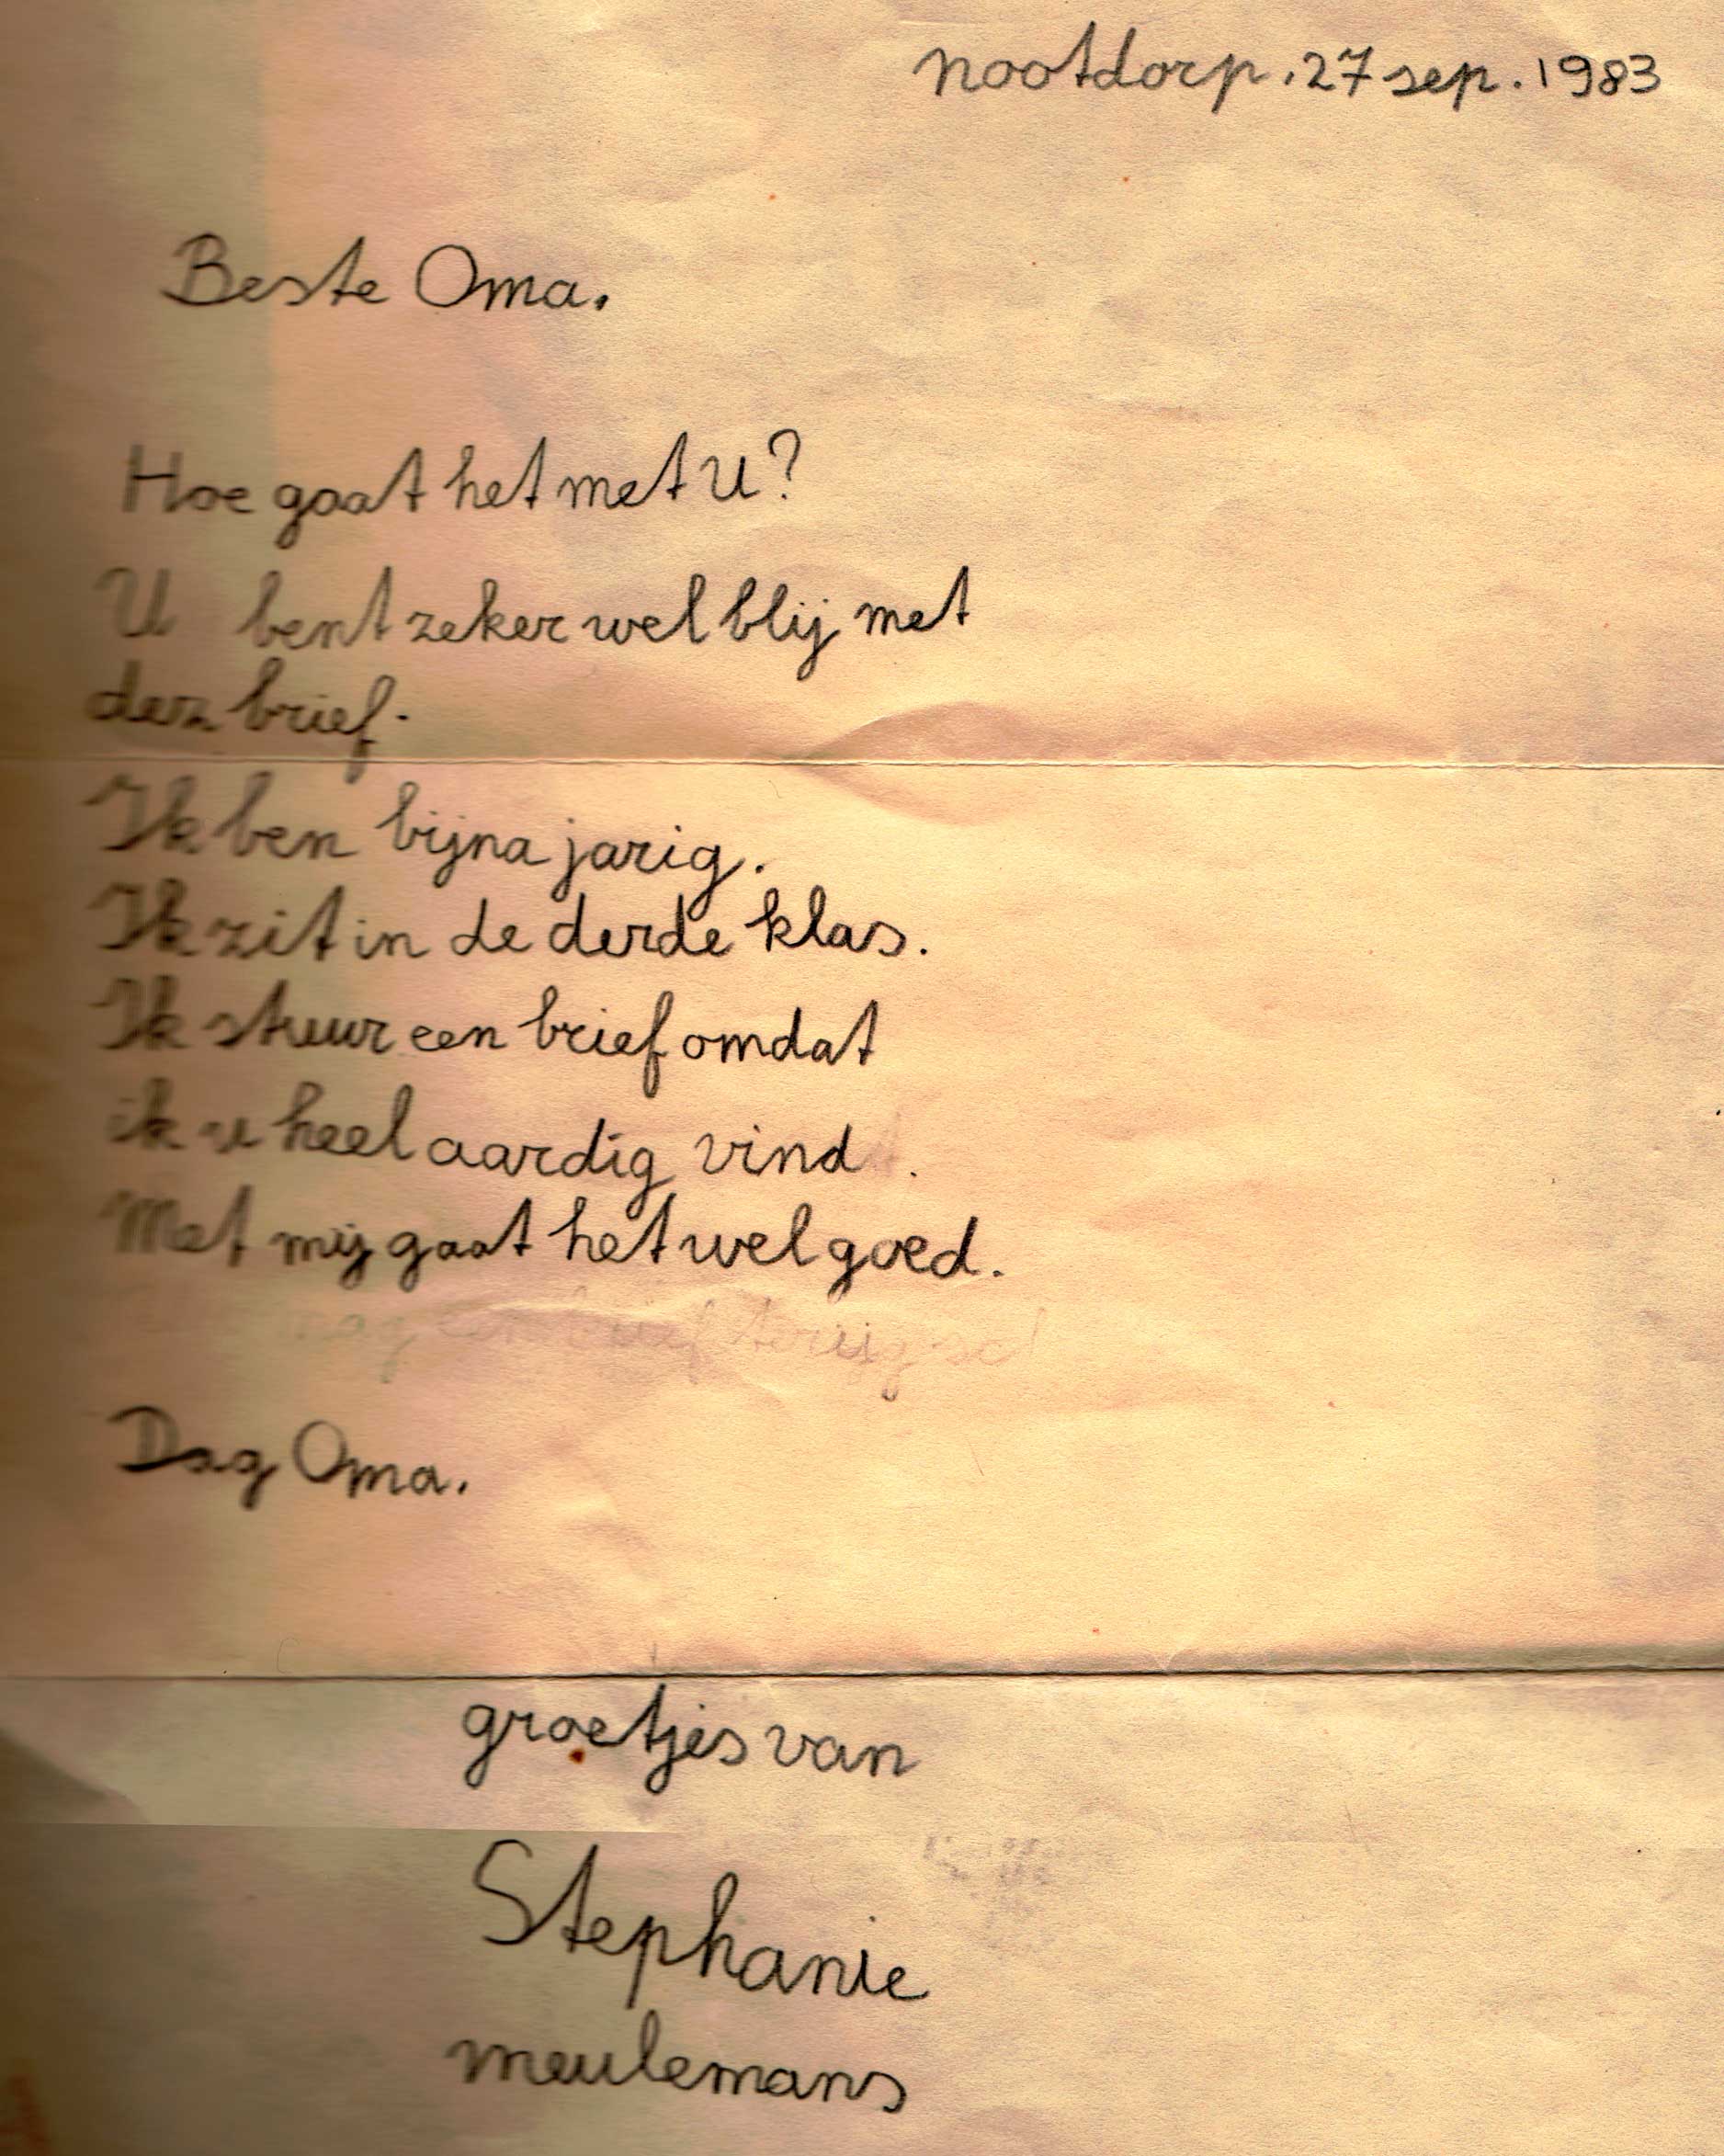 nootdorp. 27 sep. 1983
Beste Oma.
Hoe gaat het met U?
U bent zeker wel blij met
brief.
Ik ben bijna jarig.
Ik zit in de derde klas.
Ik stuur een brief omdat
ik u heel aardig vind.
Met mij gaat het wel goed.
een brief
Dag Oma.
groetjes van
Stephanie
meulemans